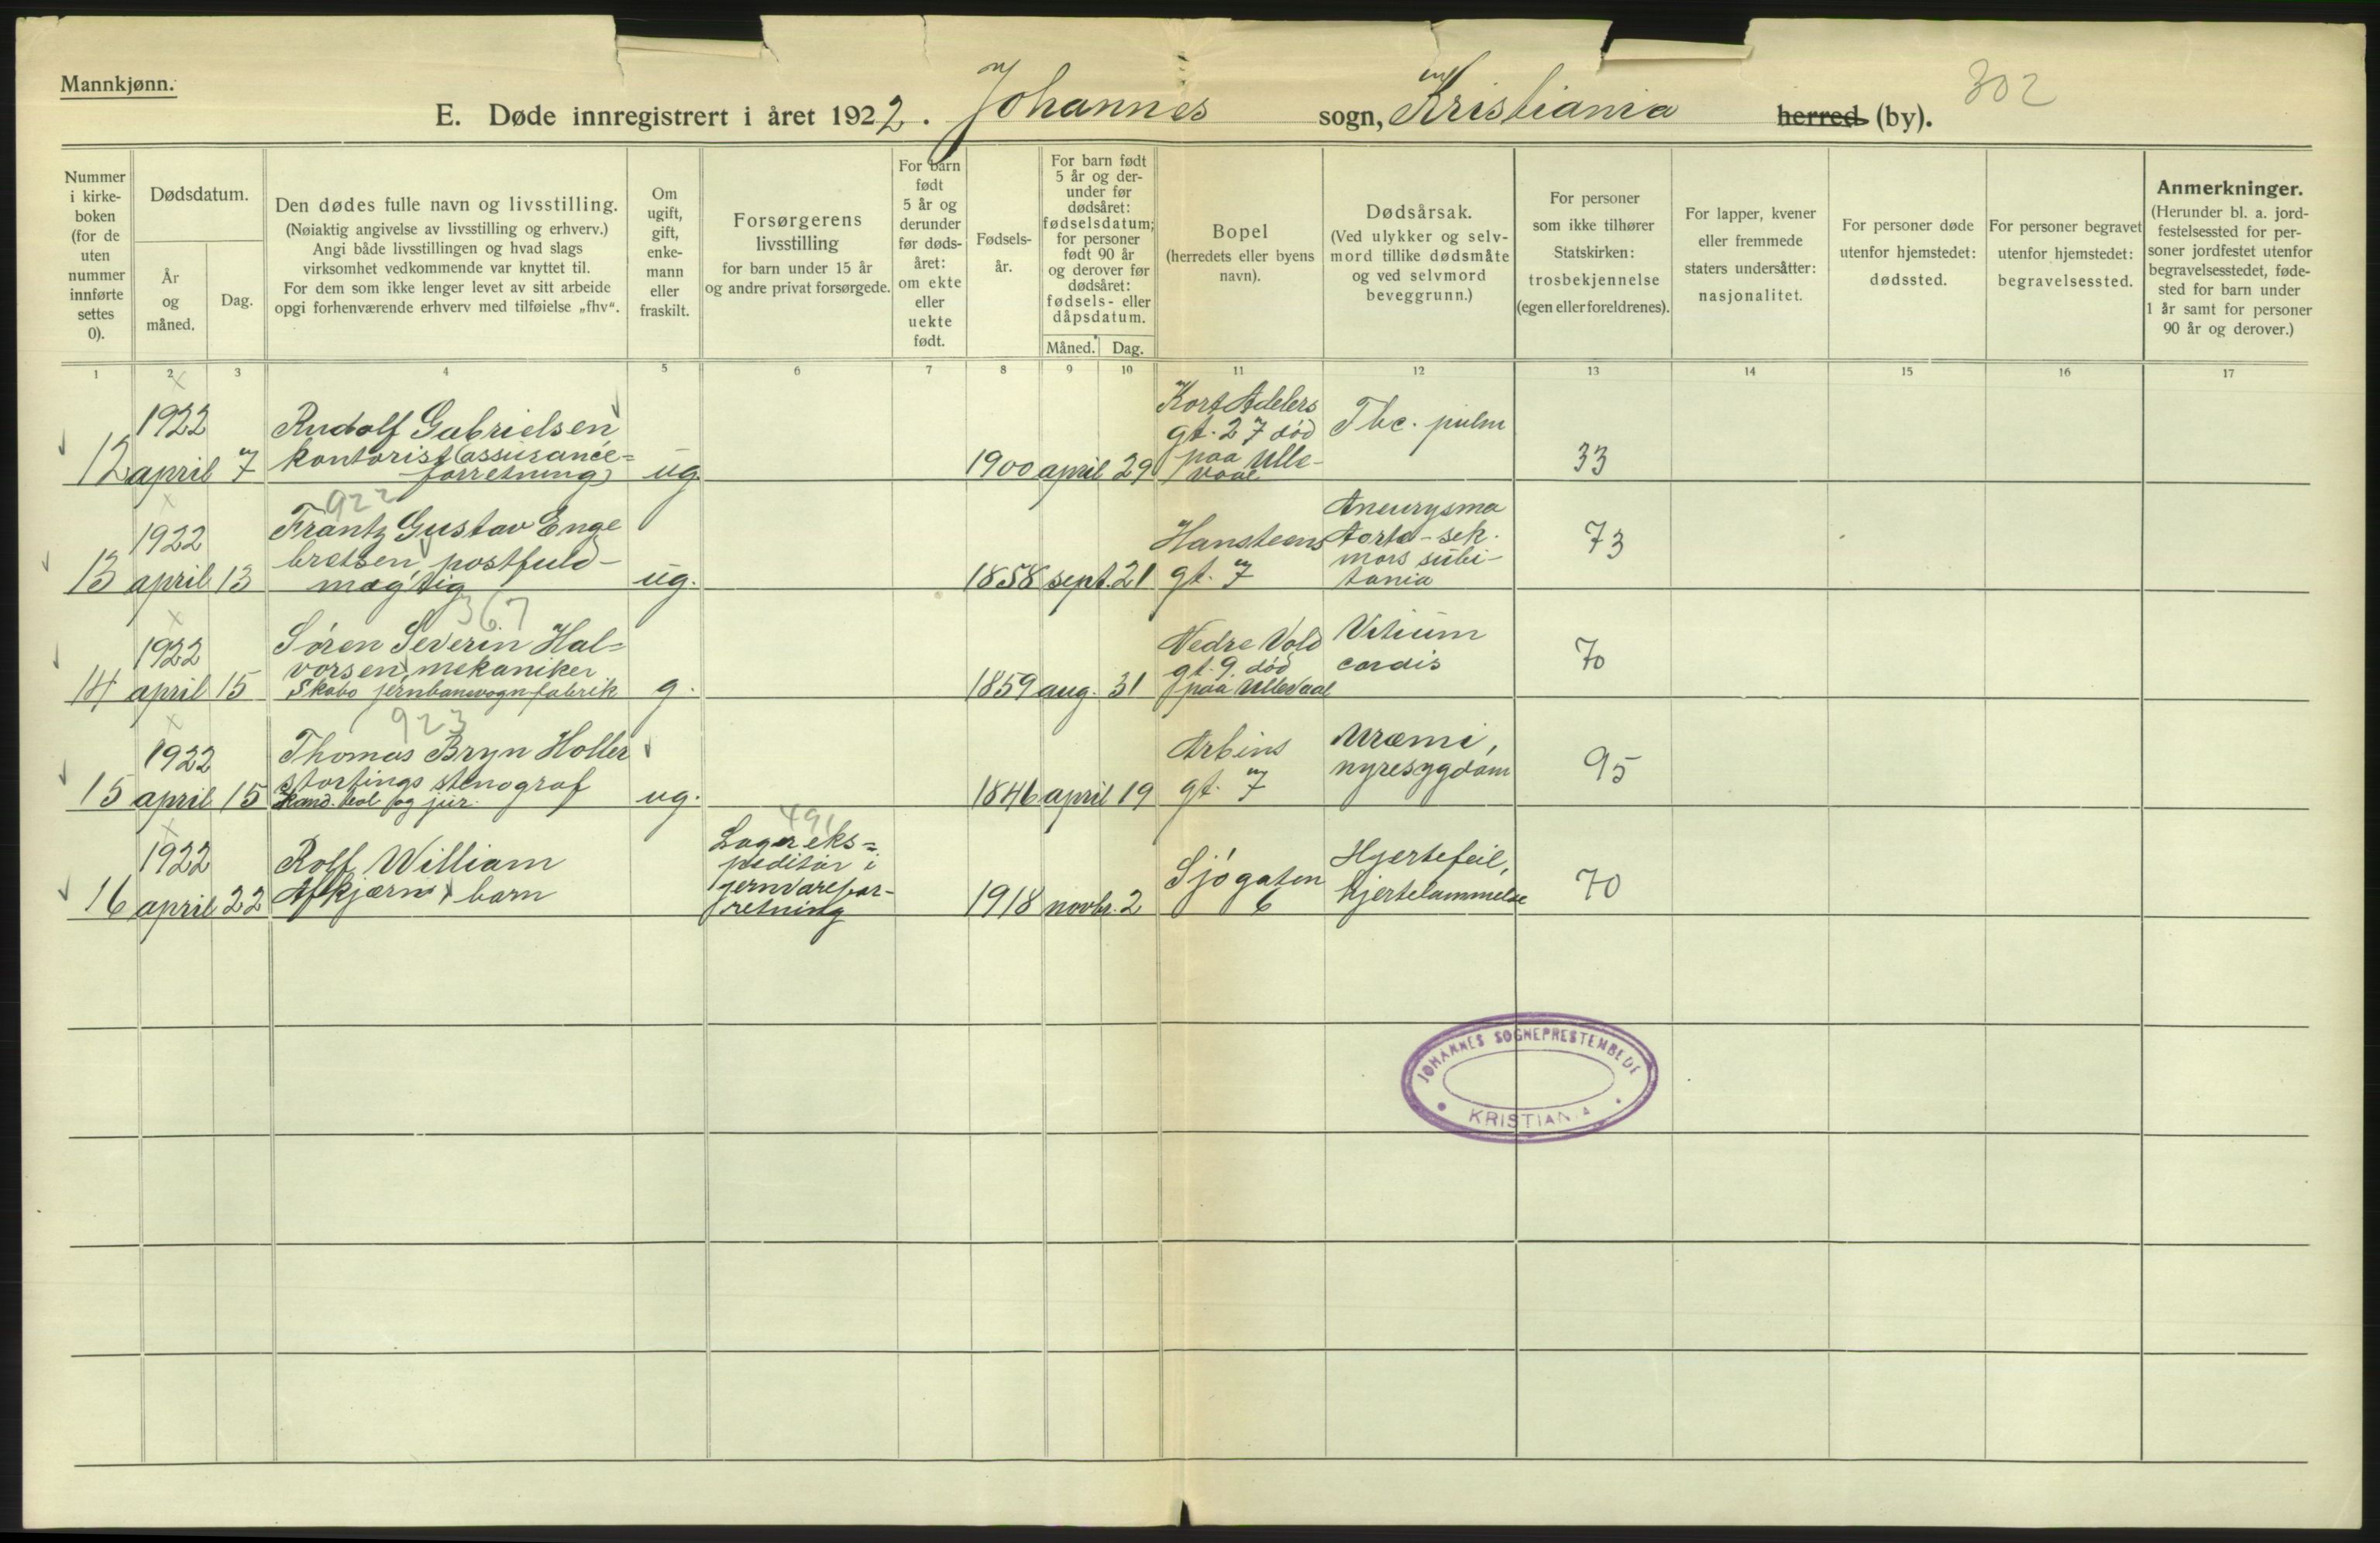 Mannkjønn.
E. Døde innregistrert i året 1922. Johannes sogn, Kristiania herred (by).
302
Nummer
i kirke-
boken
(for de
uten
nummer
innførte
settes
0).
Dødsdatum.
År
og
måned.
Dag.
Den dødes fulle navn og livsstilling.
(Nøiaktig angivelse av livsstilling og erhverv.)
Angi både livsstillingen og hvad slags
virksomhet vedkommende var knyttet til.
For dem som ikke lenger levet av sitt arbeide
opgi forhenværende erhverv med tilføielse „fhv“.
Om
ugift,
gift,
enke-
mann
eller
fraskilt.
Forsørgerens
livsstilling
for barn under 15 år
og andre privat forsørgede.
For barn
født
5 år og
derunder
før døds-
året:
om ekte
eller
uekte
født.
Fødsels-
år.
For barn født
5 år og der-
under før
dødsåret:
fødselsdatum;
for personer
født 90 år
og derover før
dødsåret:
fødsels- eller
dåpsdatum.
Måned. Dag.
Bopel
(herredets eller byens
navn).
Dødsårsak.
(Ved ulykker og selv-
mord tillike dødsmåte
og ved selvmord
beveggrunn.)
For personer
som ikke tilhører
Statskirken:
trosbekjennelse
(egen eller foreldrenes).
For lapper, kvener
eller fremmede
staters undersåtter:
nasjonalitet.
For personer døde
utenfor hjemstedet:
dødssted.
For personer begravet
utenfor hjemstedet:
begravelsessted.
Anmerkninger.
(Herunder bl. a. jord-
festelsessted for per-
soner jordfestet utenfor
begravelsesstedet, føde-
sted for barn under
1 år samt for personer
90 år og derover.)
1 2 3 4 5 6 7 8 9 10 11 12 13 14 15 16 17
12
1922
april 7
Rudolf Gabrielsen
kontorist (assurance=
forretning)
ug.
1900 april 29
Kort Adelers
gt. 27 død
paa Ulle-
vaal
Tbc. pulm
33
922
13
1922
april 13
Frantz Gustav Enge
bretsen, postfuld-
mægtig
ug.
1858 sept. 21
Hansteens
gt. 7
Aneurysma
Aorta - sek.
mors subi-
tania
73
367
14
1922
april 15
Søren Severin Hal=
vorsen, mekaniker
Skabo jernbanevognfabrik
g.
1859 aug. 31
Nedre Vold
gt. 9. død
paa Ullevaal
Vitium
cordis
70
923
15
1922
april 15
Thomas Bryn Holler
stortings stenograf
ug.
1846 april 19
Arbins
gt. 7
Uræmi,
nyresygdom
95
491
16
1922
april 22
Rolf William
Afkjærns barn
Lagereks=
peditør i
jernvarefor-
retning
1918 novbr. 2
Sjøgaten
6
Hjertefeil,
hjertelammelse
70
JOHANNES SOGNEPRESTEMBEDE
KRISTIANIA